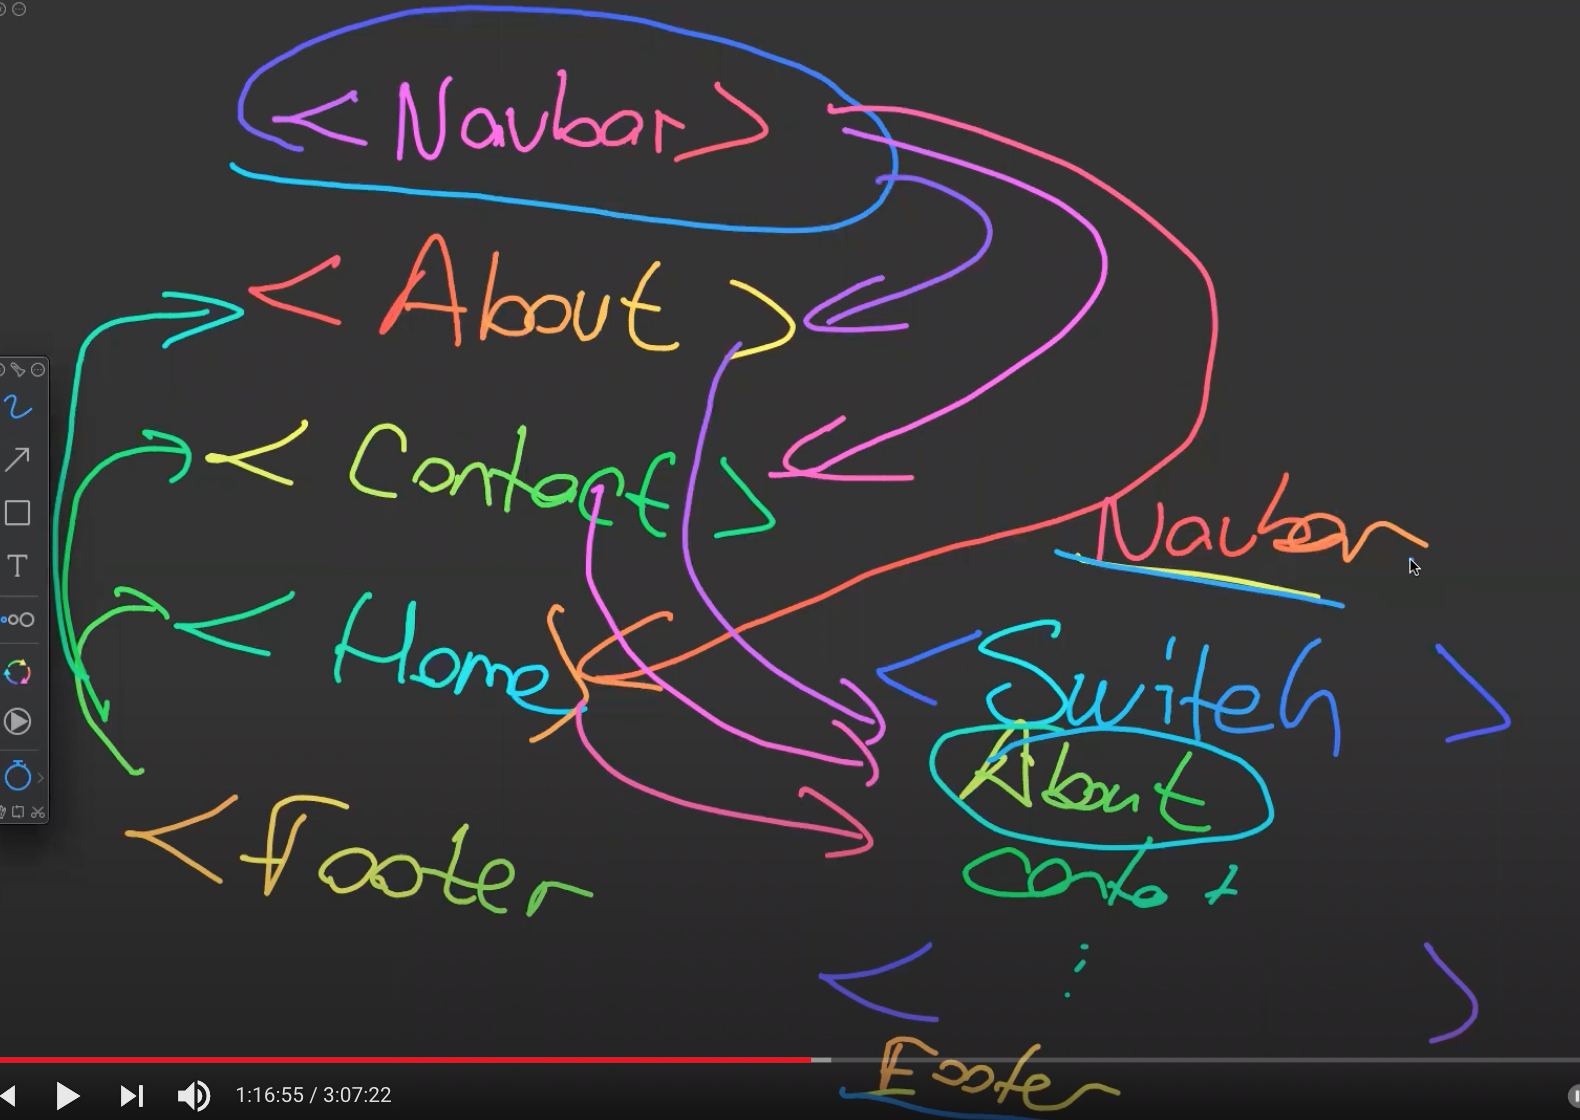 <Navbar>
<About>
<Contact>
<Home>
<Footer
Navbar
<Switch>
About
Contat
< >
Footer
T
1:16:55 / 3:07:22